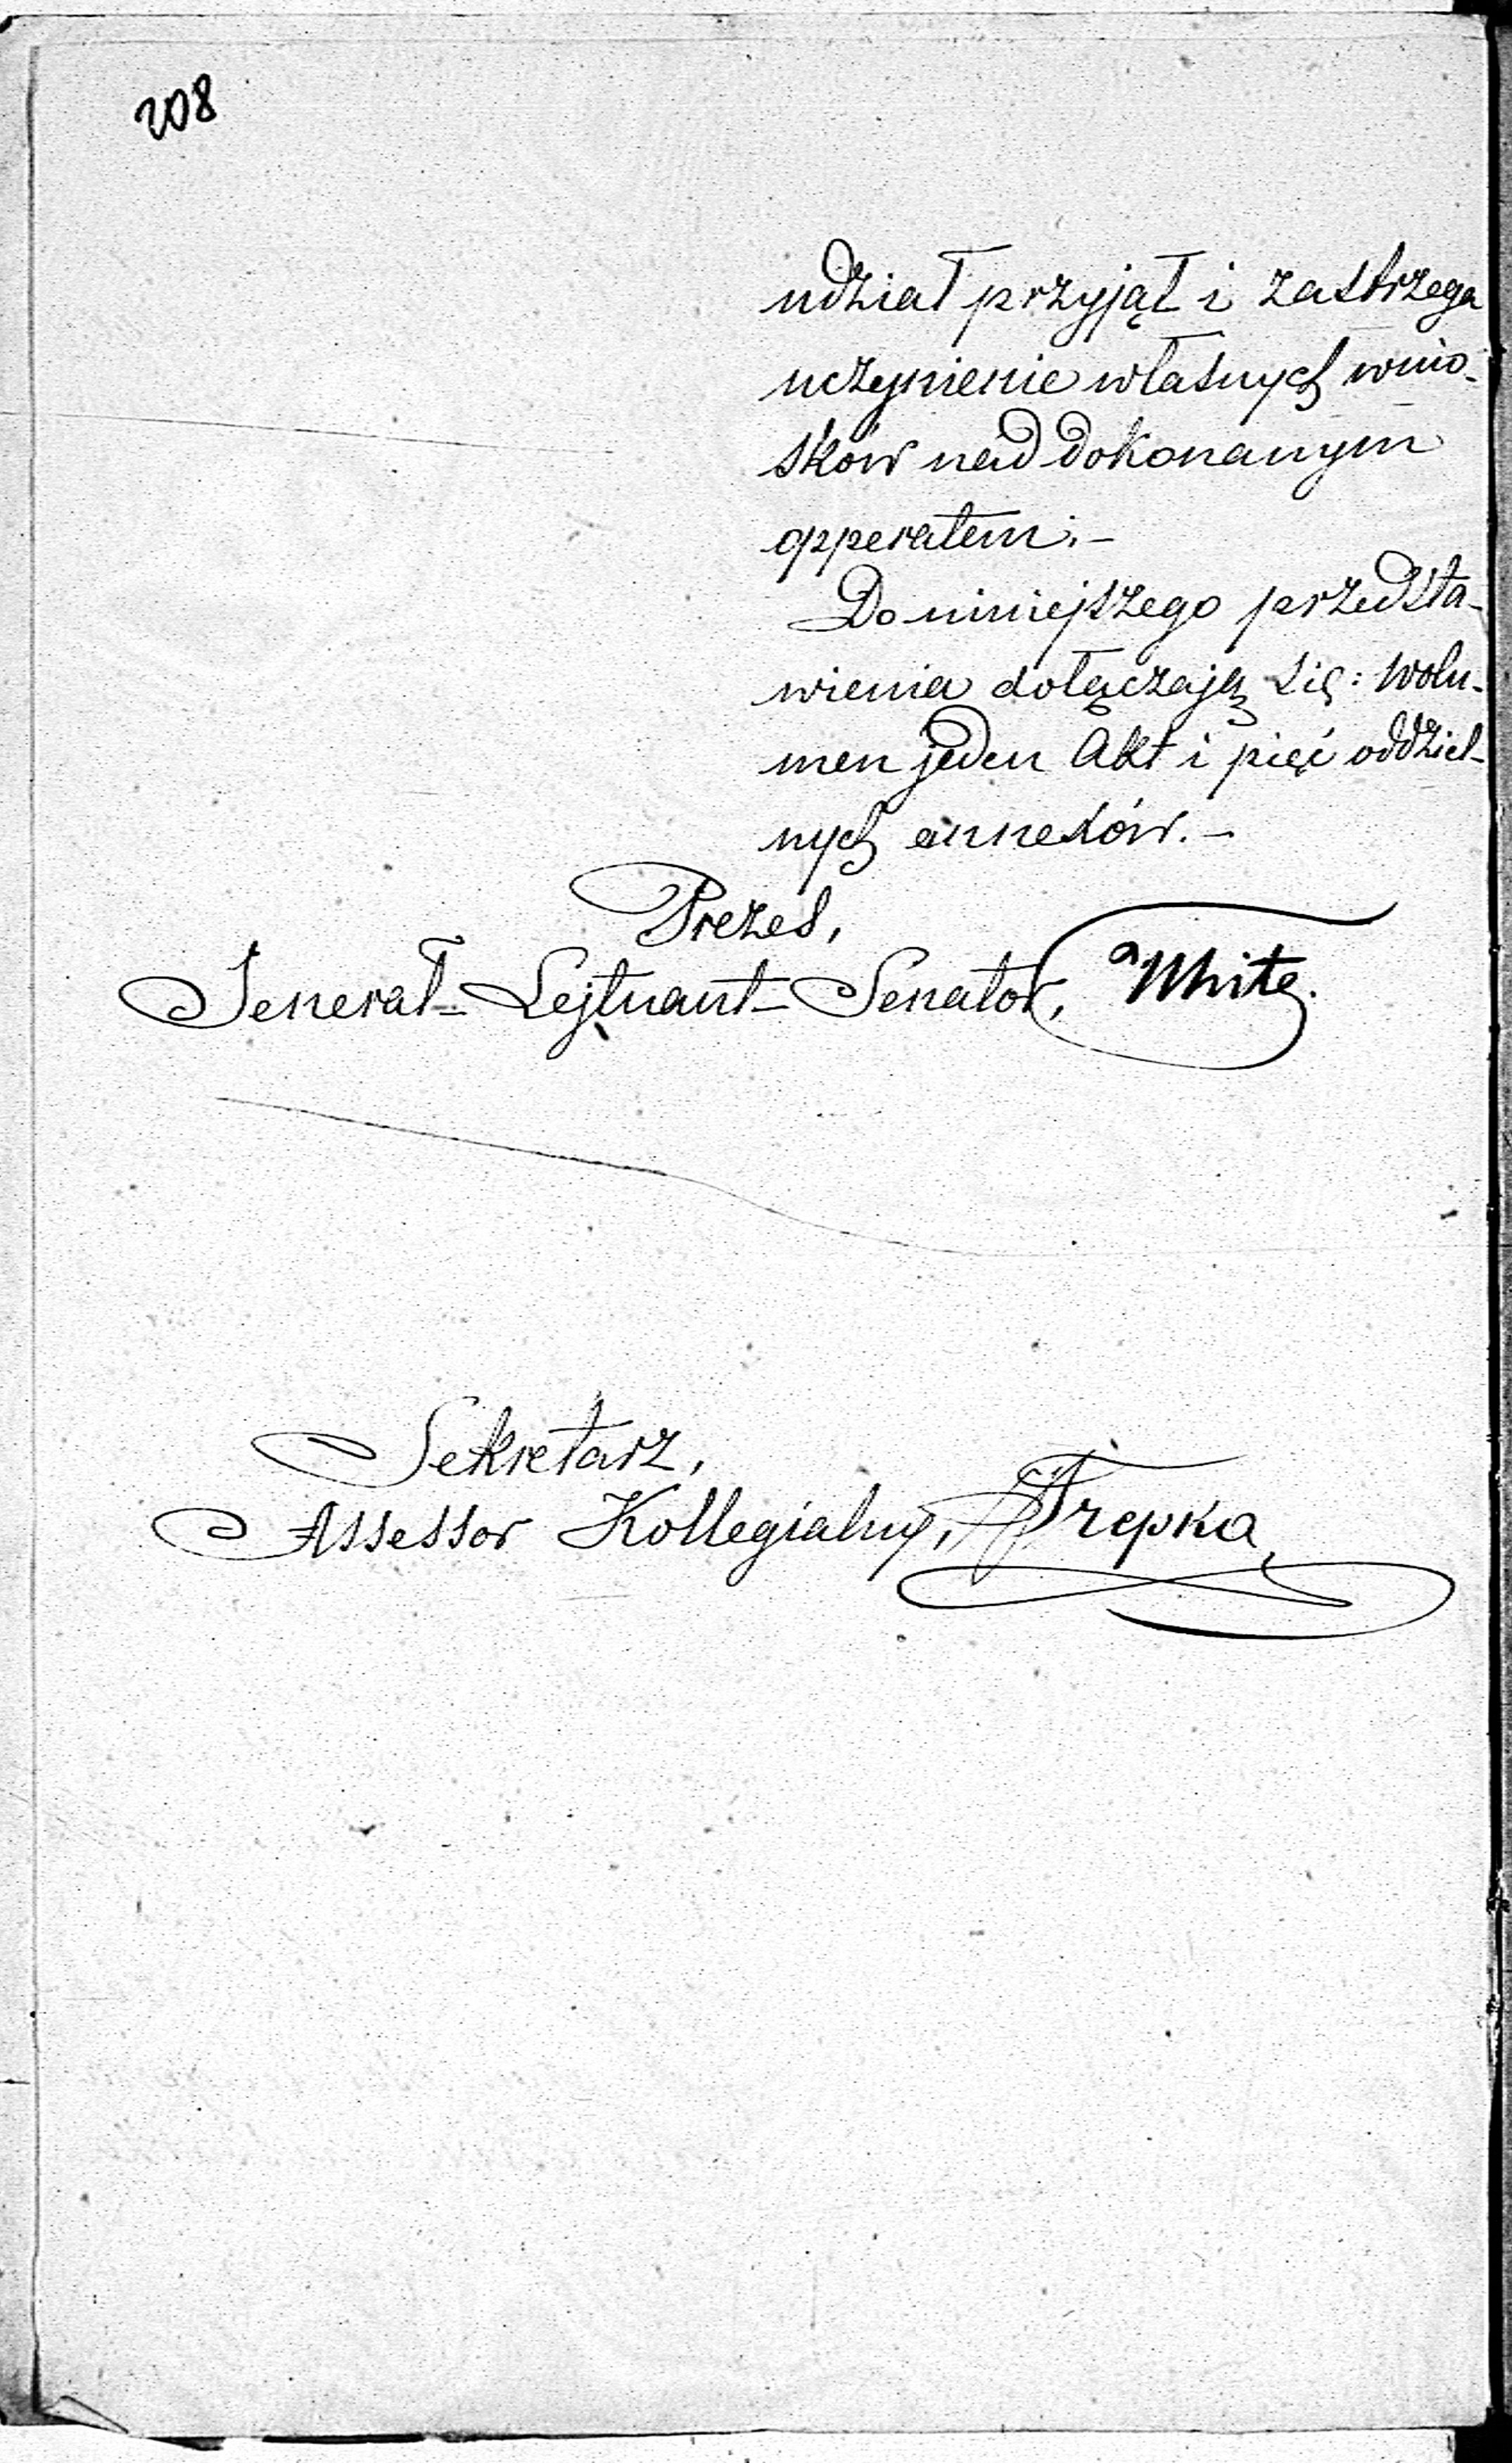 208
udział przyjął i zastrzega
uczynienie własnych wnio-
sków nad dokonanym
opperatem.-
Do niniejszego przedsta-
wienia dołączają się: wolu-
men jeden Akt i pięć oddziel-
nych annexów.-
Prezes,
Jenerał-Lejtnant-Senator, White.
Sekretarz,
Assessor Kollegialny, Trepka